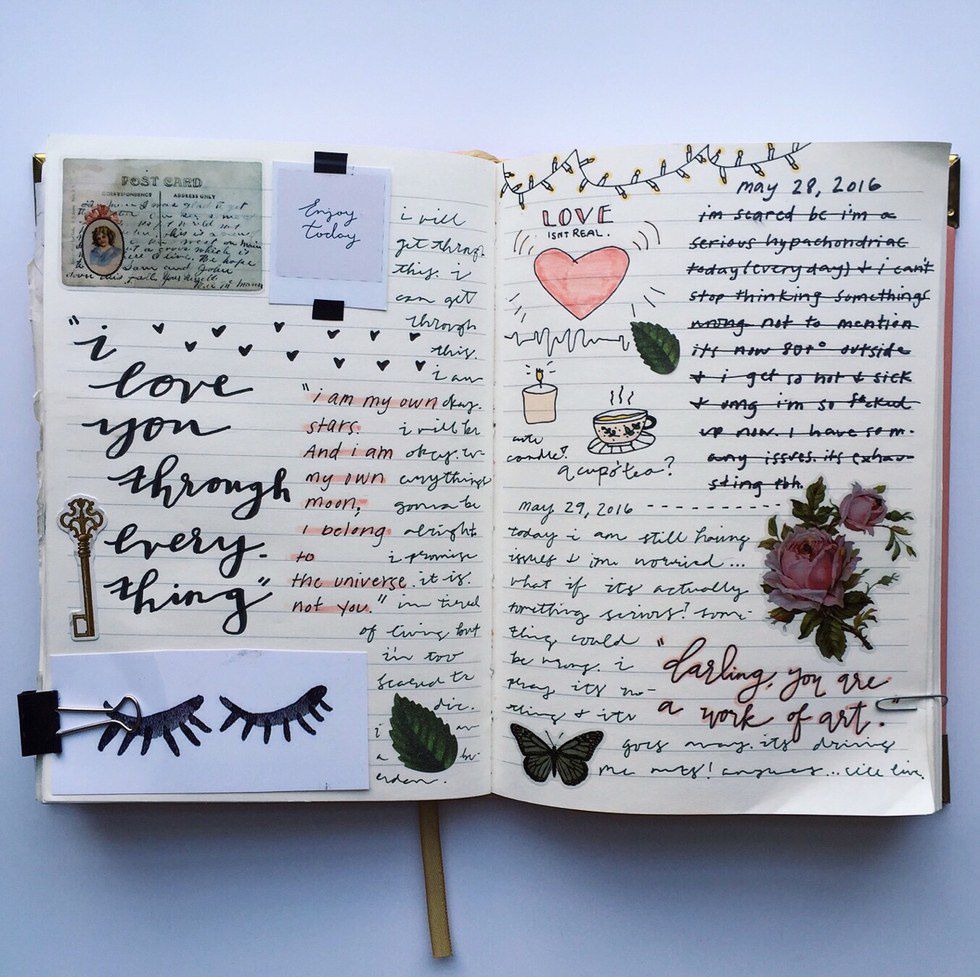 POST CARD
CORRESPONDENCE
ADDRESS ONLY
Enjoy
today
"i
love
you
through
every.
thing"
"i am my own
stars.
And i am
my own
moon,
I belong
to
the universe.
not you."
i will
get through
this. i
can get
through
this.
i am
okay.
i will be
okay.
everythings
gonna be
alright
i promise
it is.
im tired
of living but
i'm too
scared to
die.
i am
a
LOVE
ISNT REAL.
cute
candle?
a cup o' tea?
may 28, 2016
im scared bc i'm a
serious hypachondriac
today(everyday) & i can't
stop thinking somethings
wrong not to mention
it's now 80° outside
& i get so hot & sick
& omg i'm so f*cked
up now. I have som-
any issues. its exhau-
sting tbh.
may 29, 2016 - - - - - - - - - -
today i am still having
issues & im worried...
what if its actually
something serious? some-
thing could
be wrong. i
pray its no-
thing & its
"darling, you are
a work of art."
goes away. its driving
me nuts!